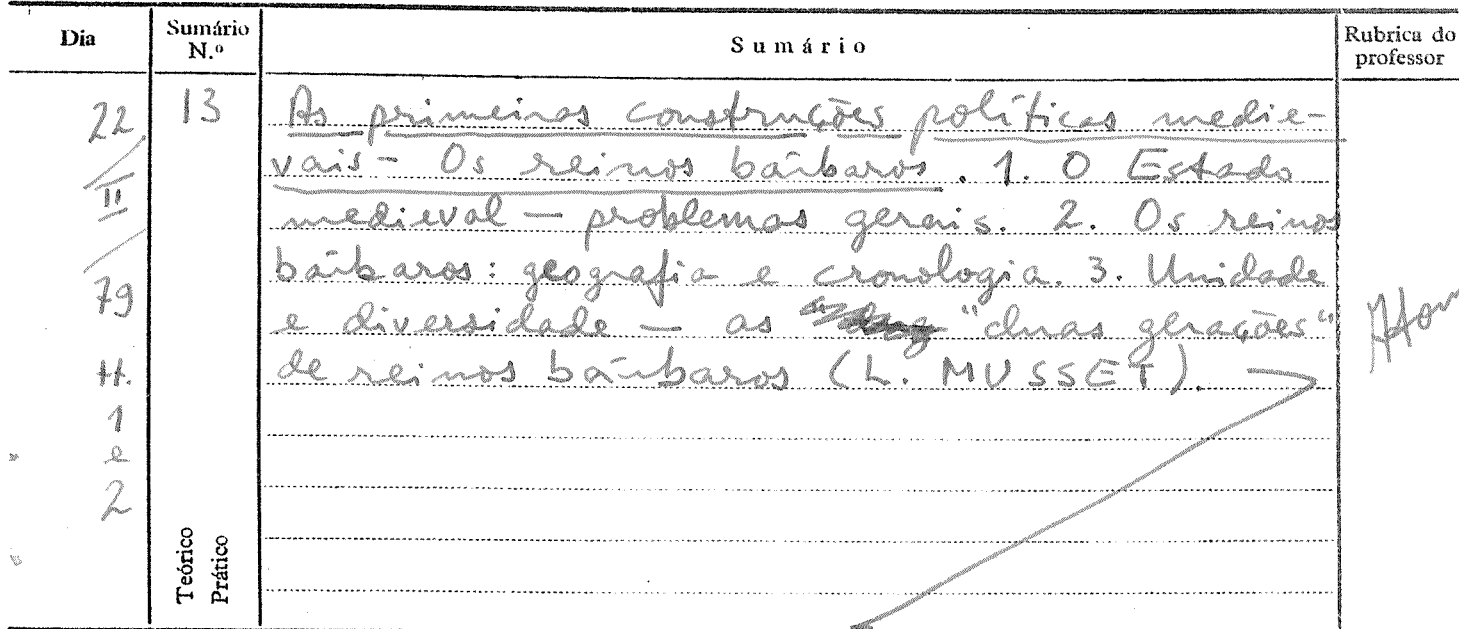 Dia
Sumário N.º
Sumário
Rubrica do professor
22
II
79
H.
1
e
2
13
Teórico
Prático
As primeiras construções políticas medie-
vais - Os reinos bárbaros. 1. O Estado
medieval — problemas gerais. 2. Os reinos
bárbaros: geografia e cronologia. 3. Unidade
e diversidade — as "duas gerações"
de reinos bárbaros (L. MUSSET).